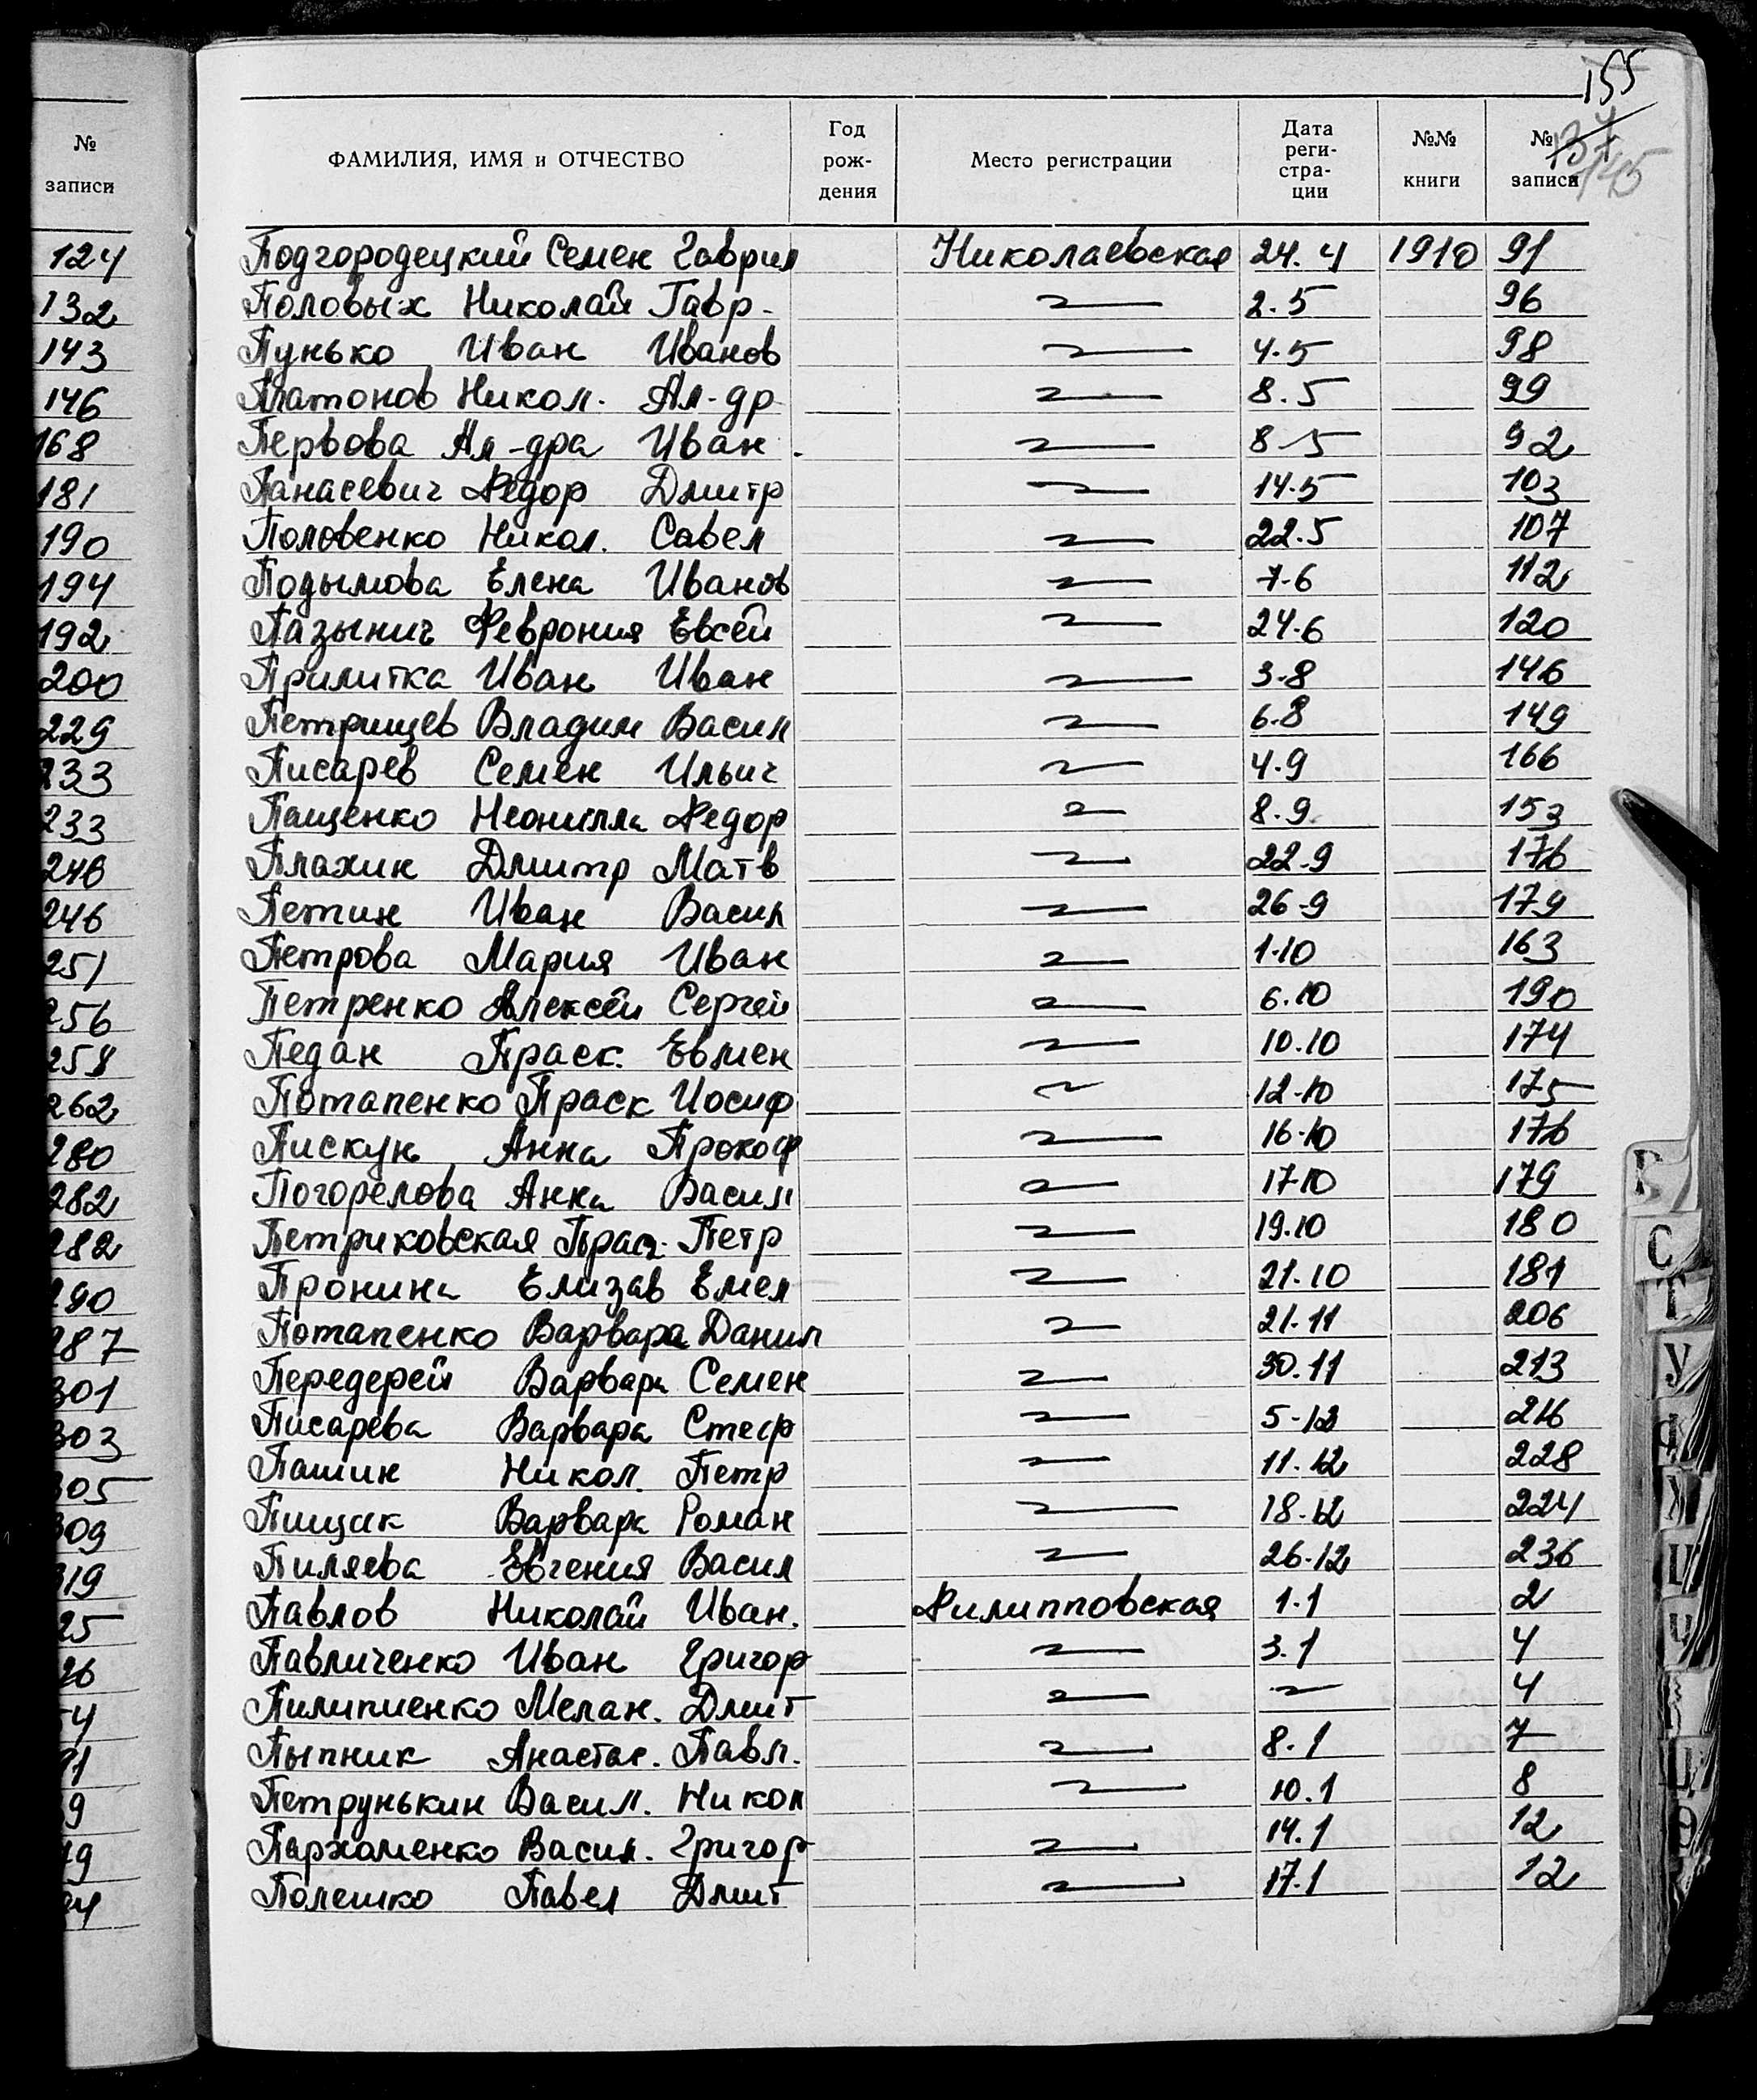 155
№ записи
ФАМИЛИЯ, ИМЯ и ОТЧЕСТВО Год рож- дения Место регистрации Дата реги- стра- ции №№ книги № записи
137
145
124 Подгородецкий Семен Гаврил Николаевская 24.4 1910 91
132 Половых Николай Гавр. 2.5 96
143 Пунько Иван Иванов 4.5 98
146 Платонов Никол. Ал-др 8.5 99
168 Первова Ал-дра Иван. 8-5 92
181 Панасевич Федор Дмитр 14.5 103
190 Половенко Никол. Савел 22.5 107
194 Подымова Елена Иванов 7-6 112
192 Пазынич Феврония Евсей 24.6 120
200 Прилитка Иван Иван 3.8 146
229 Петрищев Владим Васил 6.8 149
233 Писарев Семен Ильич 4.9 166
233 Пащенко Неонилла Федор 8.9 153
246 Плахин Дмитр Матв 22.9 176
246 Петин Иван Васил 26-9 179
251 Петрова Мария Иван 1.10 163
256 Петренко Алексей Сергей 6.10 190
258 Педан Праск. Евмен 10.10 174
262 Потапенко Праск Иосиф 12-10 175
280 Пискун Анна Прокоф 16-10 176
282 Погорелова Анна Васил 17.10 179
282 Петриковская Прас. Петр 19.10 180
290 Пронина Елизав Емел 21.10 181
287 Потапенко Варвара Данил 21.11 206
301 Передерей Варвара Семен 30.11 213
303 Писарева Варвара Стеф 5-12 216
305 Пашин Никол. Петр 11.12 228
309 Пищак Варвара Роман 18.12 224
319 Пиляева Евгения Васил 26.12 236
25 Павлов Николай Иван. Филипповская 1.1 2
26 Павличенко Иван Григор 3.1 4
4 Пилипиенко Мелан. Дмит 4
Пыпник Анастас. Павл. 8.1 7
9 Петрунькин Васил. Никол 10.1 8
9 Пархоменко Васил. Григор 14.1 12
4 Полешко Павел Дмит 17.1 12
Р
С
Т
У
Ф
Х
Ц
Ч